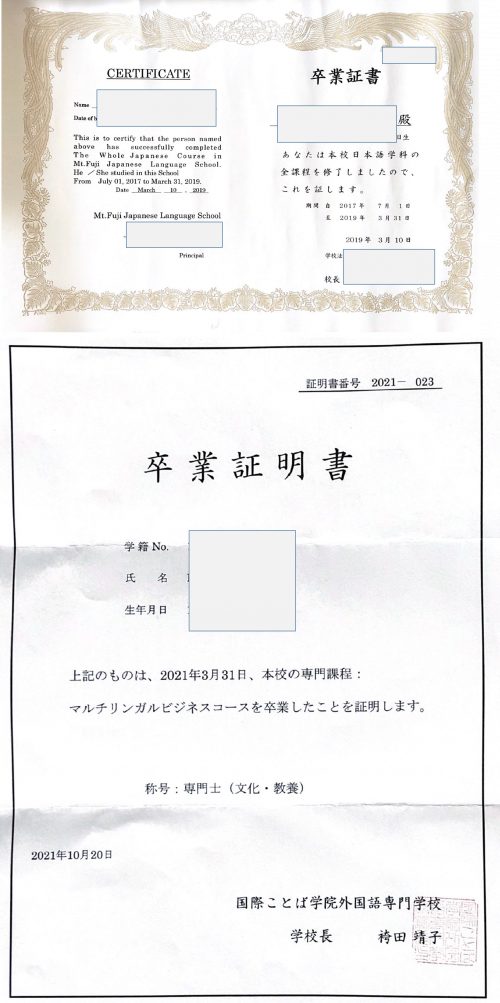 CERTIFICATE
Name
Date of b
This is to certify that the person named
above has successfully completed
The Whole Japanese Course in
Mt.Fuji Japanese Language School.
He ／She studied in this School
From July 01, 2017 to March 31, 2019.
Date March 10 , 2019
Mt.Fuji Japanese Language School
Principal
卒業証書
殿
日生
あなたは本校日本語学科の
全課程を修了しましたので、
これを証します。
期間 自 2017年 7月 1日
至 2019年 3月31日
2019年 3月10日
学校法
校長
証明書番号 2021－ 023
卒業証明書
学籍 No.
氏 名
生年月日
上記のものは、2021年3月31日、本校の専門課程：
マルチリンガルビジネスコースを卒業したことを証明します。
称号：専門士（文化・教養）
2021年10月20日
国際ことば学院外国語専門学校
学校長 袴田 靖子